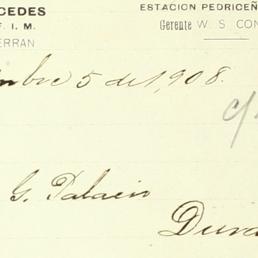 CEDES ESTACION PEDRICEÑ
F. I. M. Gerente W. S. CON
ERRAN
mbre 5 de 1,908.
c/
G. Palacio
Dura